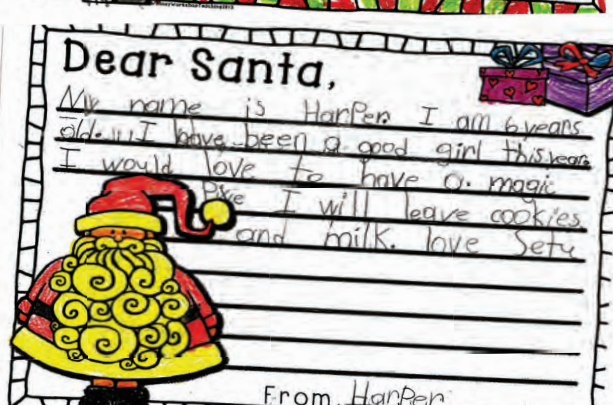 Dear Santa,
My name is Harper I am 6 years
old. I have been a good girl this year
I would love to have a magic
I will leave cookies
and milk. love
From, Harper